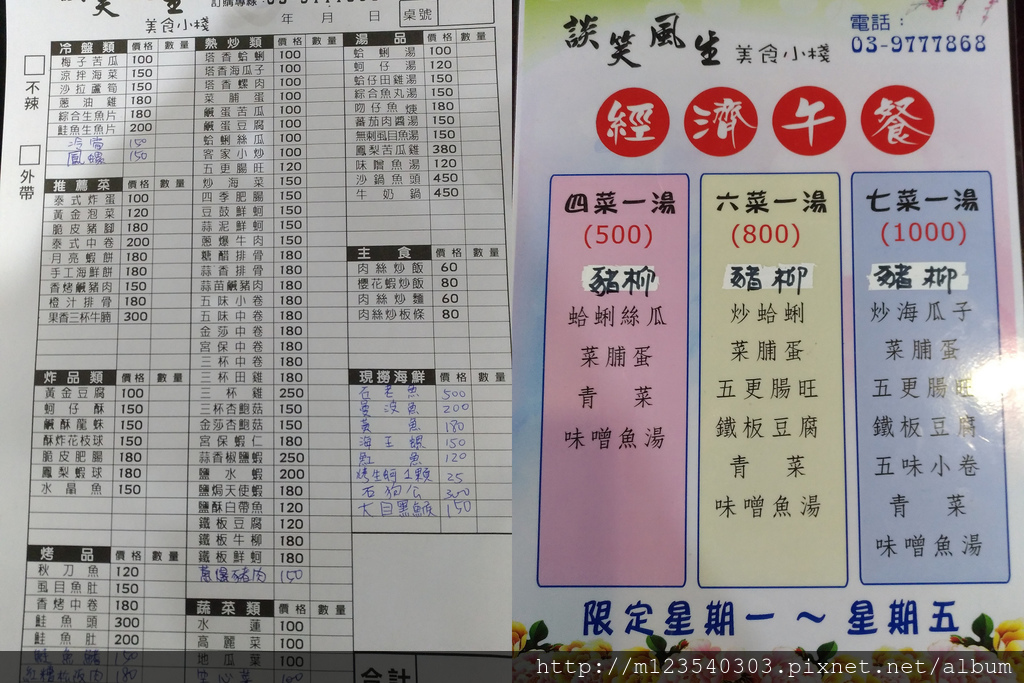 訂購專線：03-9777868
美食小棧
年 月 日 桌號
不辣
外帶
冷盤類 價格 數量
梅子苦瓜 100
涼拌海菜 150
沙拉蘆筍 150
蔥油雞 180
綜合生魚片 180
鮭魚生魚片 200
150
鳳螺 150
推薦菜 價格 數量
泰式炸蛋 100
黃金泡菜 120
脆皮豬腳 180
泰式中卷 200
月亮蝦餅 180
手工海鮮餅 180
香烤鹹豬肉 150
橙汁排骨 180
果香三杯牛腩 300
炸品類 價格 數量
黃金豆腐 100
蚵仔酥 150
鹹酥龍珠 150
酥炸花枝球 150
脆皮肥腸 180
鳳梨蝦球 180
水晶魚 150
烤品 價格 數量
秋刀魚 120
虱目魚肚 150
香烤中卷 180
鮭魚頭 300
鮭魚肚 200
150
180
熱炒類 價格 數量
塔香蛤蜊 100
塔香海瓜子 100
塔香螺肉 100
菜脯蛋 100
鹹蛋苦瓜 100
鹹蛋豆腐 100
蛤蜊絲瓜 100
客家小炒 100
五更腸旺 120
炒海菜 150
四季肥腸 150
豆鼓鮮蚵 150
蒜泥鮮蚵 150
蔥爆牛肉 150
糖醋排骨 180
蒜香排骨 180
蒜苗鹹豬肉 180
五味小卷 180
五味中卷 180
金莎中卷 180
宮保中卷 180
三杯中卷 180
三杯田雞 180
三杯雞 250
三杯杏鮑菇 150
金莎杏鮑菇 150
宮保蝦仁 180
蒜香椒鹽蝦 250
鹽水蝦 200
鹽焗天使蝦 180
鹽酥白帶魚 120
鐵板豆腐 120
鐵板牛柳 180
鐵板鮮蚵 180
蔥爆豬肉 150
蔬菜類 價格 數量
水蓮 100
高麗菜 100
地瓜菜 100
空心菜 100
湯品 價格 數量
蛤蜊湯 100
蚵仔湯 120
蛤仔田雞湯 150
綜合魚丸湯 150
吻仔魚羹 180
蕃茄肉醬湯 150
無刺虱目魚湯 150
鳳梨苦瓜雞 380
味噌魚湯 120
沙鍋魚頭 450
牛奶鍋 450
主食 價格 數量
肉絲炒飯 60
櫻花蝦炒飯 80
肉絲炒麵 60
肉絲炒板條 80
現撈海鮮 價格 數量
石老魚 500
曼波魚 200
黃魚 180
海王螺 150
紅魚 120
烤生蚵1顆 25
石狗公 300
大目黑鰱 150
合計
談笑風生 美食小棧
電話：
03-9777868
經濟午餐
四菜一湯
(500)
豬柳
蛤蜊絲瓜
菜脯蛋
青菜
味噌魚湯
六菜一湯
(800)
豬柳
炒蛤蜊
菜脯蛋
五更腸旺
鐵板豆腐
青菜
味噌魚湯
七菜一湯
(1000)
豬柳
炒海瓜子
菜脯蛋
五更腸旺
鐵板豆腐
五味小卷
青菜
味噌魚湯
限定星期一～星期五
http://m123540303.pixnet.net/album